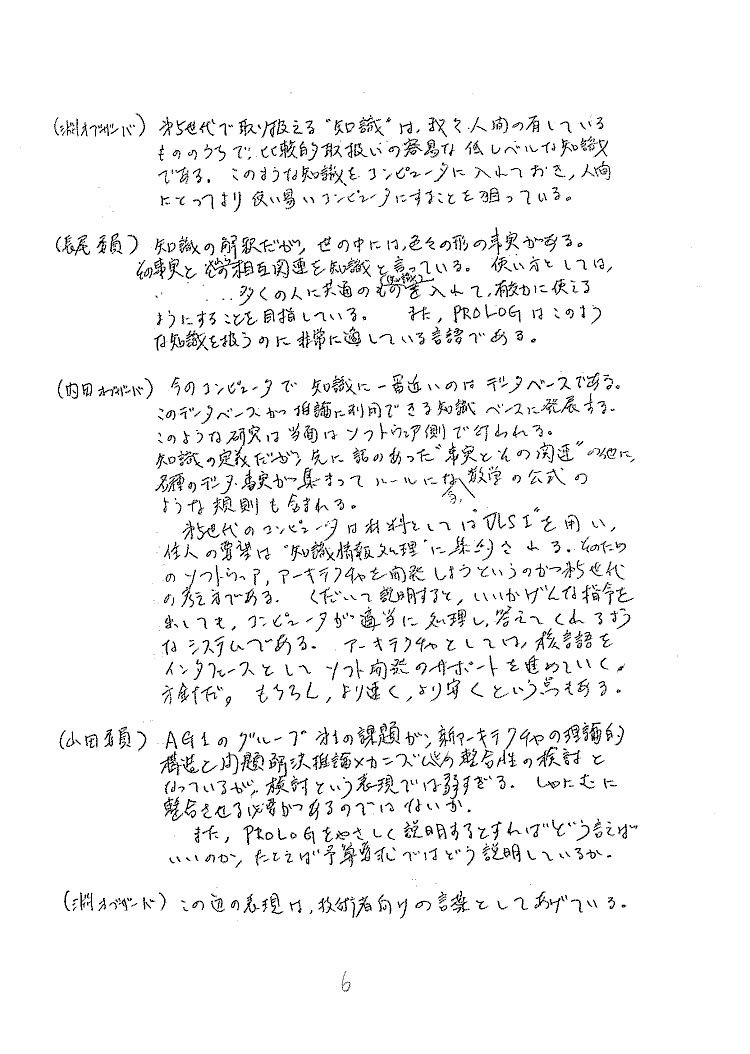 (渕オブザーバ) 第5世代で取り扱える"知識"は、我々人間の有している
もののうちで、比較的取扱いの容易な低レベルな知識
である。このような知識をコンピュータに入れておき、人間
にとってより使い易いコンピュータにすることを狙っている。
(長尾委員) 知識の解釈だが、世の中には、色々の形の事実がある。
その事実と 相互関連を知識と言っている。使い方としては、
多くの人に共通のもの(知識)を入れて、有効に使える
ようにすることを目指している。また、PROLOGはこのよう
な知識を扱うのに非常に適している言語である。
(内田オブザーバ) 今のコンピュータで知識に一番近いのはデータベースである。
このデータベースが推論に利用できる知識ベースに発展する。
このような研究は当面はソフトウェア側で行われる。
知識の定義だが、先に話のあった"事実とその関連"の他に、
各種のデータ・事実が集まってルールになる、数学の公式の
ような規則も含まれる。
第5世代のコンピュータは材料としては"VLSI"を用い、
使人の要望は"知識情報処理"に集約される。そのため
のソフトウェア、アーキテクチャを開発しようというのが第5世代
の考え方である。くだいて説明すると、いいかげんな指令を
出しても、コンピュータが適当に処理し、答えてくれるよう
なシステムである。アーキテクチャとしては、核言語を
インタフェースとしてソフト開発のサポートを進めていく
方針だ。もちろん、より速く、より安くという点もある。
(山田委員) AG1のグループ第1の課題が、新アーキテクチャの理論的
構造と問題解決推論メカニズムとの整合性の検討と
なっているが、検討という表現では弱すぎる。しゃにむに
整合させる必要があるのではないか。
また、PROLOGをやさしく説明するとすればどう言えば
いいのか、たとえば予算要求ではどう説明しているか。
(渕オブザーバ) この辺の表現は、技術者向けの言葉としてあげている。
6